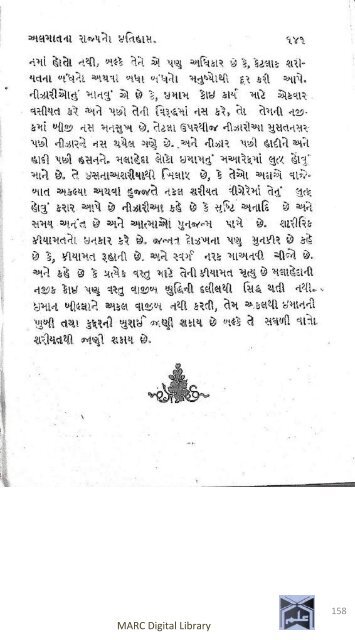 અલમાતના રાજ્યનો ઇતિહાસ. ૧૪૧
નમાં હોતો નથી, બલ્કે તેને એ પણ અધિકાર છે કે, કેટલાક શરી-
યતના બંધનો અથવા બધા બંધનો મનુષ્યોથી દૂર કરી આપે.
નીઝારીઓનું માનવું એ છે કે, ઇમામ કોઇ કાર્ય માટે એકવાર
વસીયત કરે અને પછી તેની વિરૂદ્ધમાં નસ કરે, તો તેમની નજી-
કમાં બીજી નસ મનસુખ છે, તેટલા ઉપરથીજ નીઝારીઓ મુસતનસર
પછી નીઝારને નસ થયેલ ગણે છે. અને નીઝાર પછી હાદીને અને
હાદી પછી હસનને. મલાહેદા લોકો ઇમામનું મઆરેફમાં હોવું
માને છે. તે ખિલાફ છે, કે તેઓ
ખાત અકલ્યા અથવા હુજ્જતે નકલ શરીયત વીગેરેમાં તેનું
હોવું કરાર આપે છે નીઝારીઆ કહે છે કે સૃષ્ટિ અનાદિ છે અને
સમય અનંત છે અને આત્માઓ પુનર્જન્મ પામે છે. શારીરિક
કીયામતનો ઇનકાર કરે છે. જન્નત દોઝખના પણ મુનકીર છે કહે
છે કે, કીયામત રૂહાની છે. અને સ્વર્ગ નરક માઅનવી ચીજો છે.
અને કહે છે કે પ્રત્યેક વસ્તુ માટે તેની કીયામત મૃત્યુ છે મલાહેદાની
નજીક કોઇ પણ વસ્તુ વાજીબ બુદ્ધિની દલીલથી સિદ્ધ થતી નથી.
ઇમાન બીલ્લાને અકલ વાજીબ નથી કરતી, તેમ અકલથી ઇમાનની
ખુબી તથા કુફ્રની બુરાઇ જાણી શકાય છે બલ્કે તે સઘળી વાતો
શરીયતથી જાણી શકાય છે.
158
MARC Digital Library